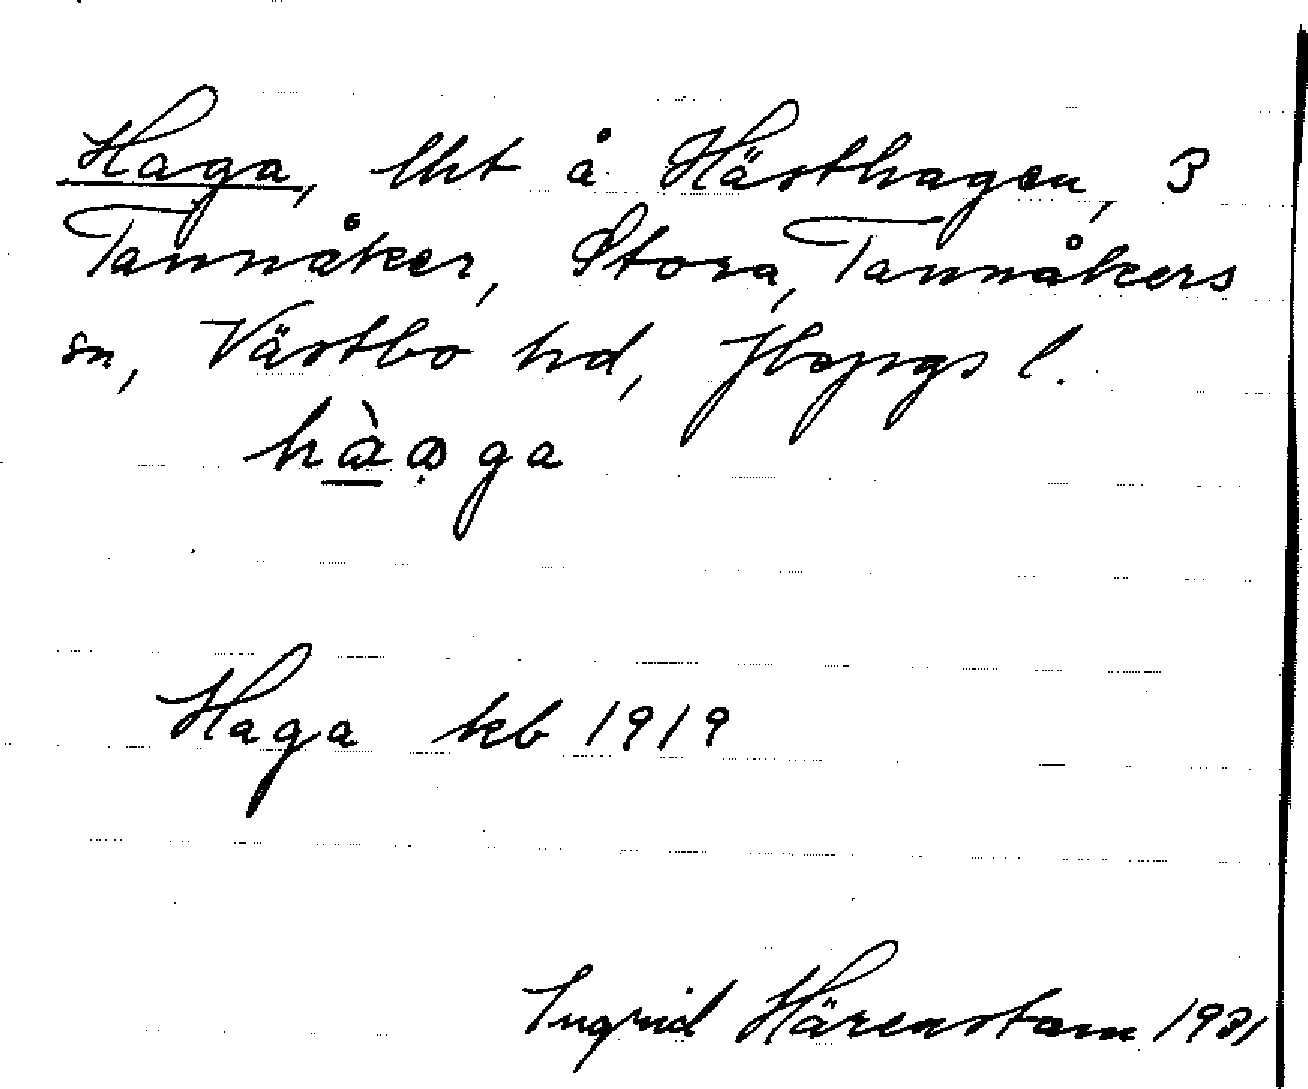 Haga, lht å Hästhagen, 3
Tannåker, Stora, Tannåkers
sn, Västbo hd, Jkpgs l.
hàaga
Haga kb 1919
Ingrid Härenstam 1931